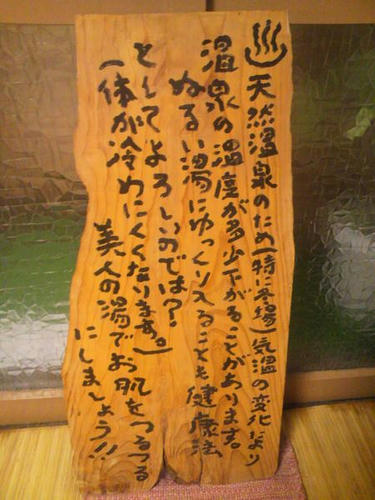 ♨天然温泉のため(特に冬場)気温の変化より
温泉の温度が多少下がることがあります。
ぬるい湯にゆっくり入ることも健康法
としてよろしいのでは?
(体が冷めにくくなります。)
美人の湯でお肌をつるつる
にしましょう!!